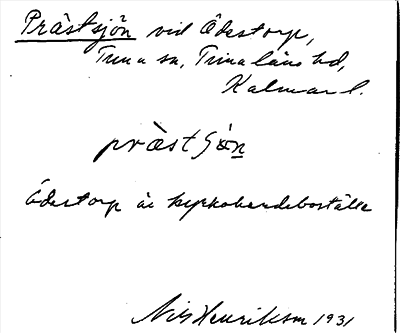 Prästsjön vid Ödestorp,
Tuna sn, Tunaläns hd,
Kalmar l.
prästsjön
Ödestorp är kyrkoherdeboställe
Nils Henrikson 1931